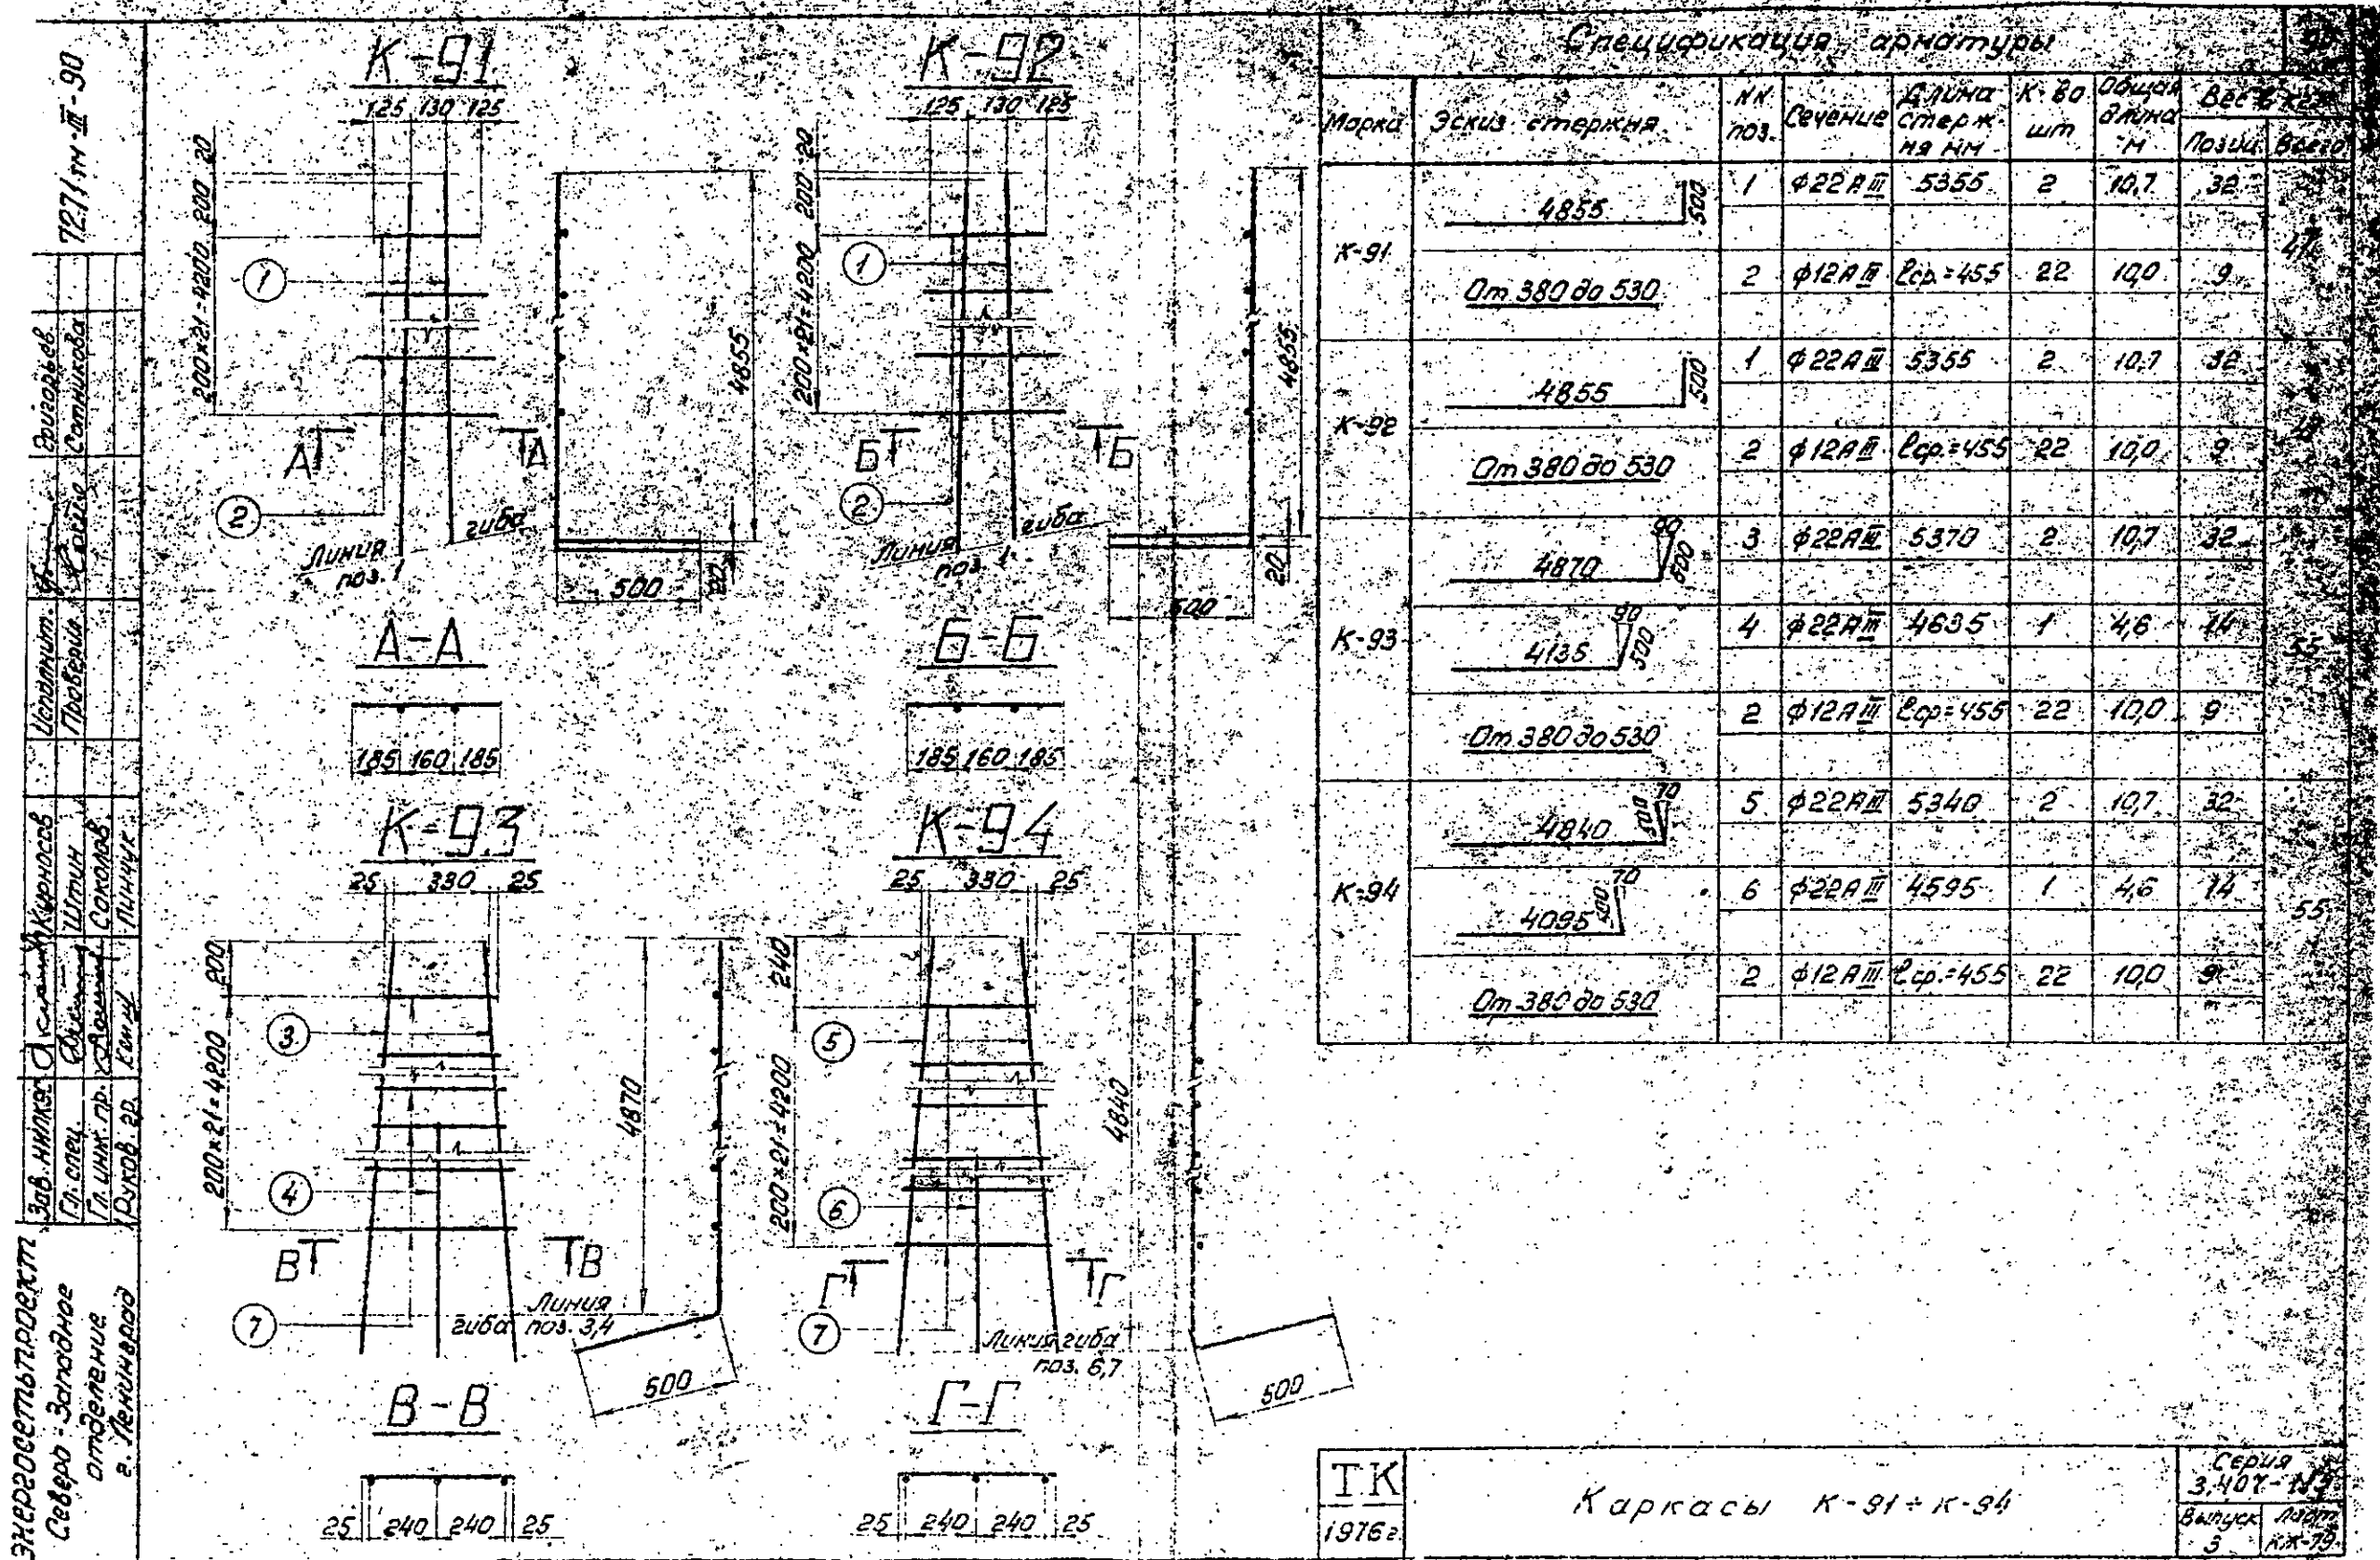 7271тм-III-90
Исполнит.
Григорьев
Проверил
Сотникова
Зав. НИЛКЭС
Курносов
Гл. спец.
Штин
Гл. инж. пр.
Соколов
Руков. гр.
Линчук
Энергосетьпроект
Северо-Западное
отделение
г. Ленинград
К-91
125 130 125
20
200
200×21=4200
1
2
А А
Линия гиба
поз. 1
4855
500
20
К-92
125 130 125
20
200
200×21=4200
1
2
Б Б
Линия гиба
поз. 1
4855
500
20
А-А
185 160 185
Б-Б
185 160 185
К-93
25 330 25
200
200×21=4200
3
4
7
В В
Линия
гиба поз. 3,4
4870
500
К-94
25 330 25
240
200×21=4200
5
6
7
Г Г
Линия гиба
поз. 6,7
4840
500
В-В
25 240 240 25
Г-Г
25 240 240 25
Спецификация арматуры
Марка Эскиз стержня NN поз. Сечение Длина стержня мм К-во шт Общая длина м Вес в кг
Позиц. Всего
К-91
4855 500 1 ф22АIII 5355 2 10,7 32
От 380 до 530 2 ф12АIII ℓср.=455 22 10,0 9
К-92
4855 500 1 ф22АIII 5355 2 10,7 32
От 380 до 530 2 ф12АIII ℓср.=455 22 10,0 9
К-93
4870 90 500 3 ф22АIII 5370 2 10,7 32
4135 90 500 4 ф22АIII 4635 1 4,6 14
55
От 380 до 530 2 ф12АIII ℓср=455 22 10,0 9
К-94
4840 500 70 5 ф22АIII 5340 2 10,7 32
4095 500 70 6 ф22АIII 4595 1 4,6 14
55
От 380 до 530 2 ф12АIII ℓср.=455 22 10,0 9
ТК
1976г.
Каркасы К-91÷К-94
Серия
Выпуск
5
Лист
КЖ-79